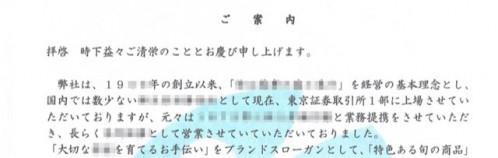 ご 案 内
拝啓 時下益々ご清栄のこととお慶び申し上げます。
弊社は、19 年の創立以来、「 」を経営の基本理念とし、
国内では数少ない として現在、東京証券取引所1部に上場させてい
ただいておりますが、元々は と業務提携をさせていただ
き、長らく として営業させていていただいておりました。
「大切な を育てるお手伝い」をブランドスローガンとして、「特色ある旬の商品」